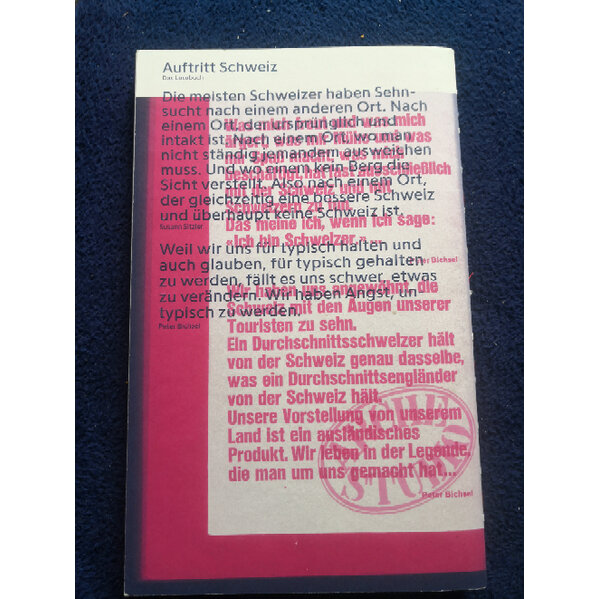 Auftritt Schweiz
Das Lesebuch
Die meisten Schweizer haben Sehn-
sucht nach einem anderen Ort. Nach
einem Ort, der ursprünglich und
intakt ist. Nach einem Ort, wo man
nicht ständig jemandem ausweichen
muss. Und wo einem kein Berg die
Sicht verstellt. Also nach einem Ort,
der gleichzeitig eine bessere Schweiz
und überhaupt keine Schweiz ist.
Susann Sitzler
Weil wir uns für typisch halten und
auch glauben, für typisch gehalten
zu werden, fällt es uns schwer, etwas
zu verändern. Wir haben Angst, un-
typisch zu werden.
Peter Bichsel
Was mich freut und was mich
ärgert, was mir Mühe und was
mir macht, was mich
beschäftigt, hat fast ausschließlich
mit der Schweiz und mit
Schweizern zu tun.
Das meine ich, wenn ich sage:
«Ich bin Schweizer.»...
Peter Bichsel
Wir haben uns angewöhnt, die
Schweiz mit den Augen unserer
Touristen zu sehn.
Ein Durchschnittsschweizer hält
von der Schweiz genau dasselbe,
was ein Durchschnittsengländer
von der Schweiz hält.
Unsere Vorstellung von unserem
Land ist ein ausländisches
Produkt. Wir leben in der Legende,
die man um uns gemacht hat...
Peter Bichsel
ARCHE
STUDIO